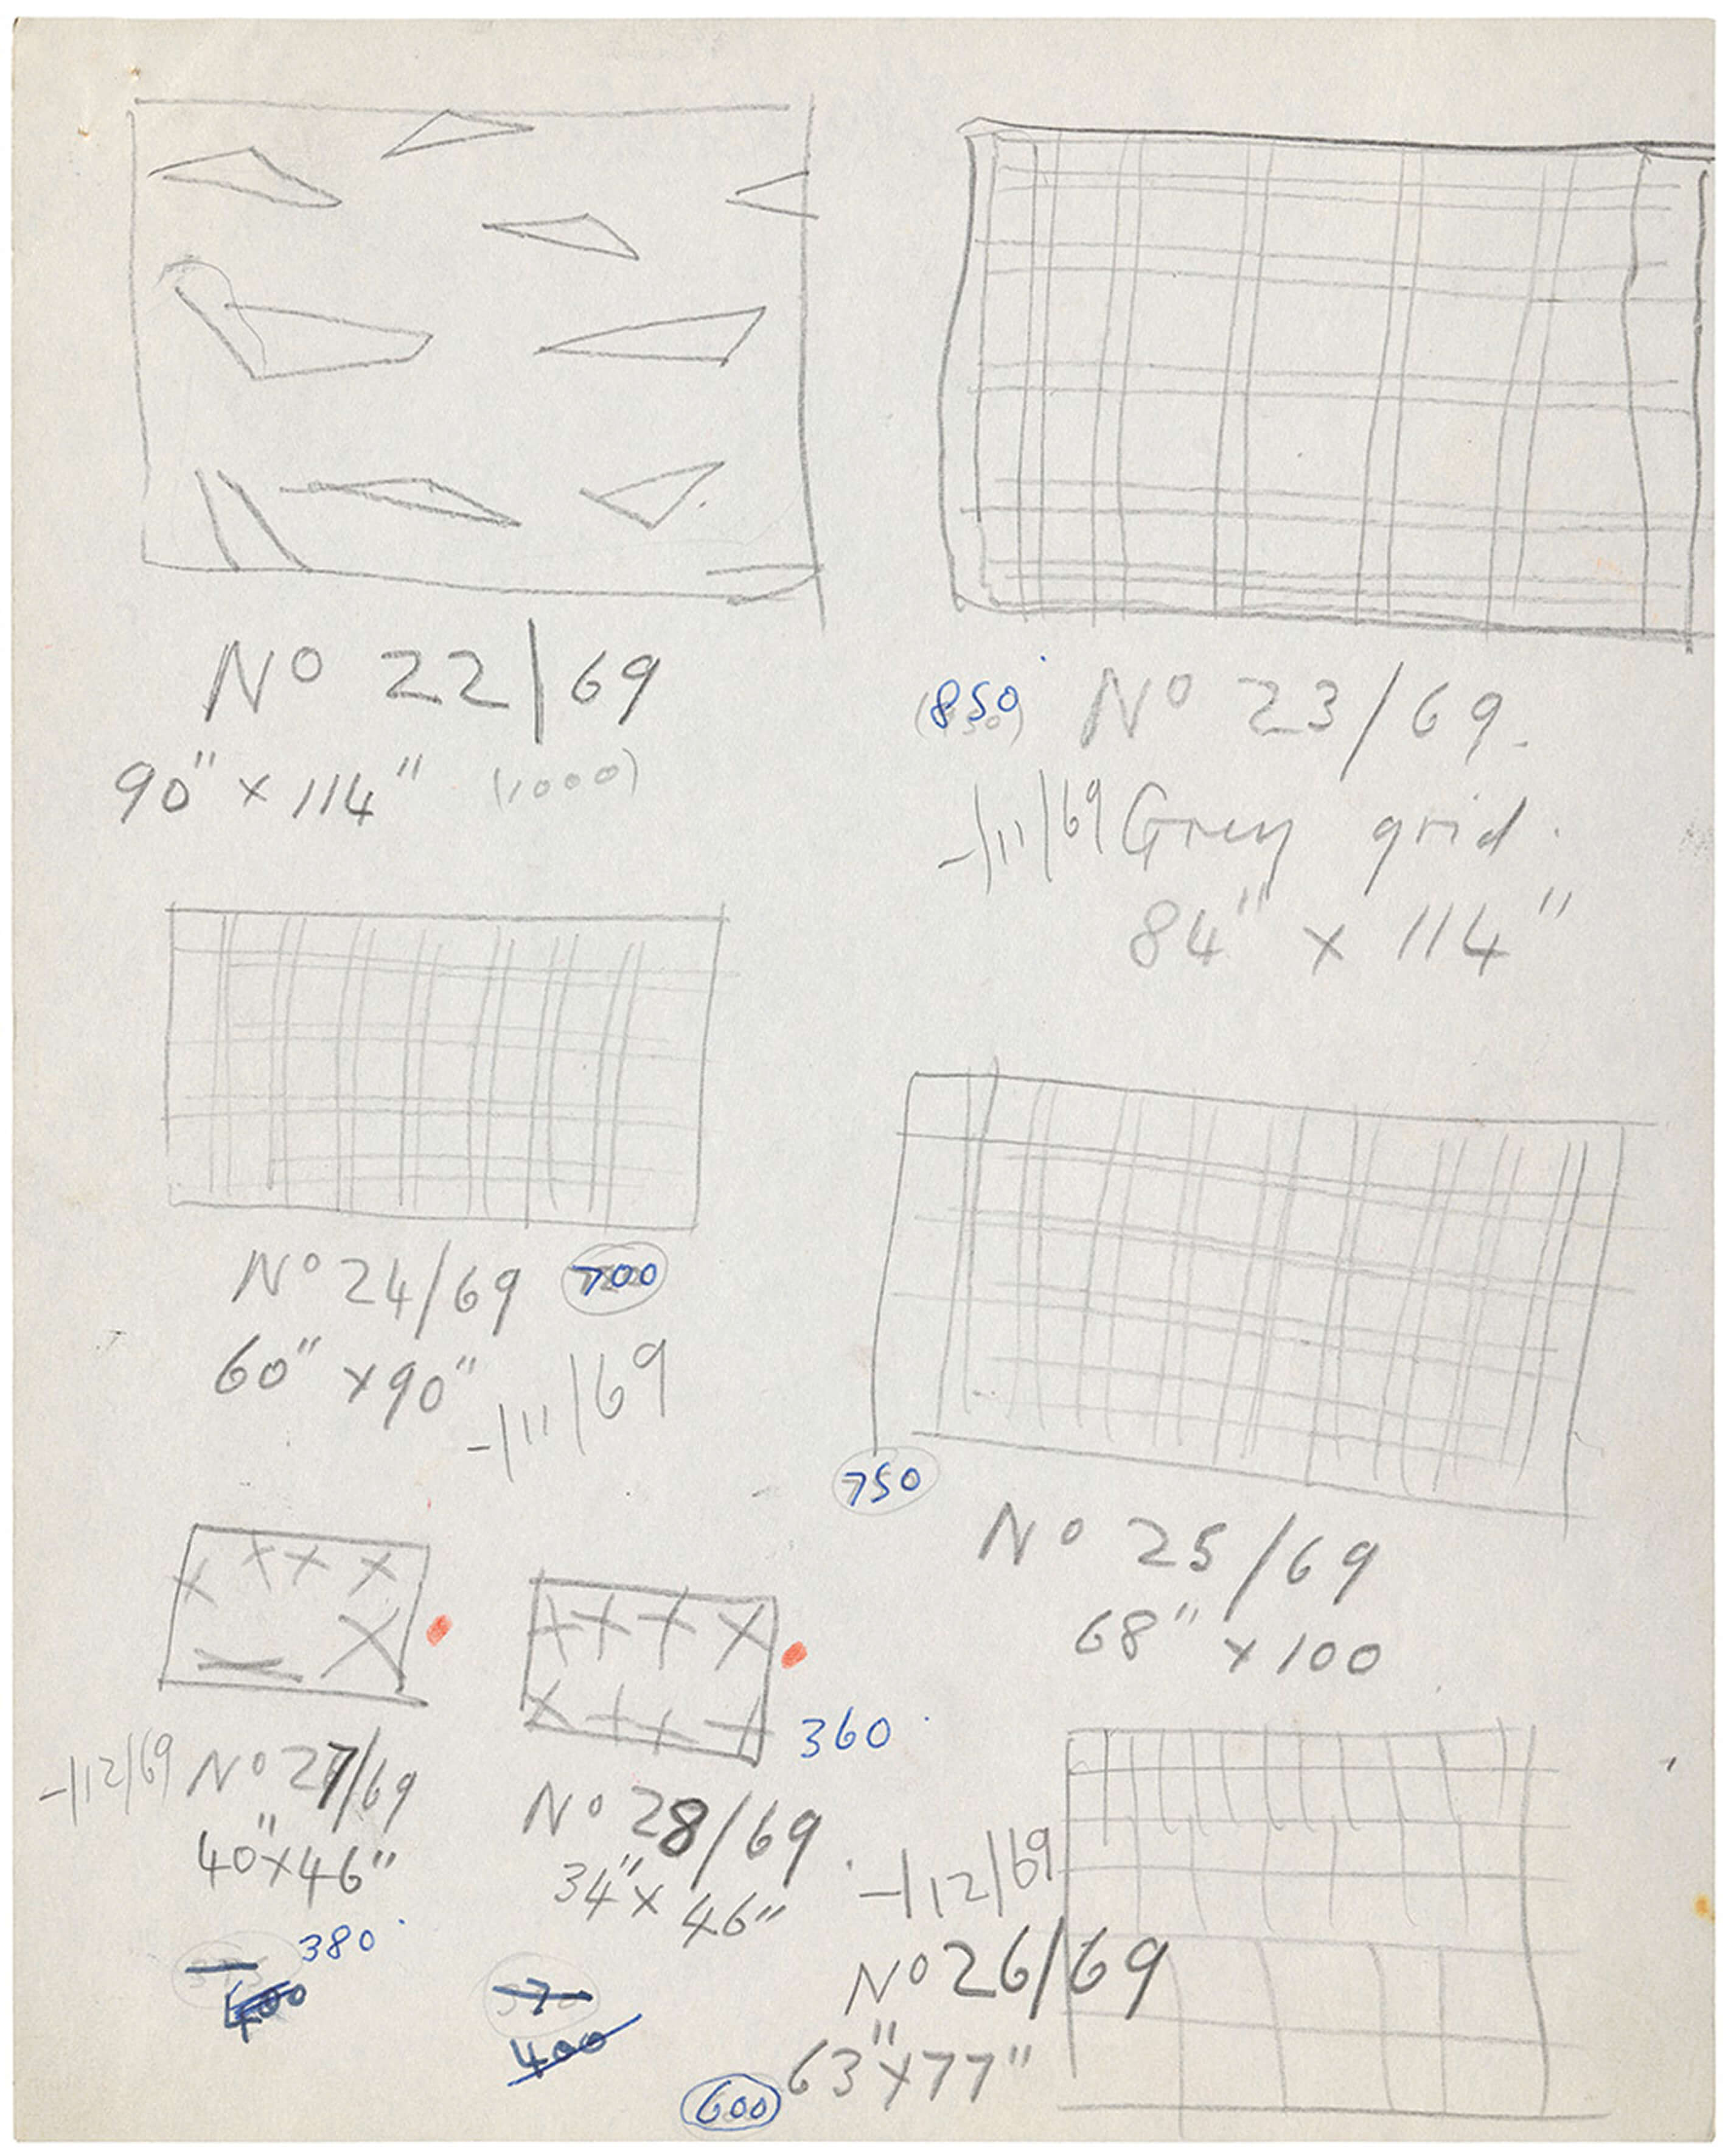 Nº 22/69
90" x 114" (1000)
(850) Nº 23/69.
-/11/69 Grey grid.
84" x 114"
Nº 24/69 700
60" x 90" -/11/69
750
Nº 25/69
68" x 100
-/12/69 Nº 27/69
40" x 46"
380
400
360
Nº 28/69
34" x 46"
400
-/12/69
Nº 26/69
63" x 77"
600